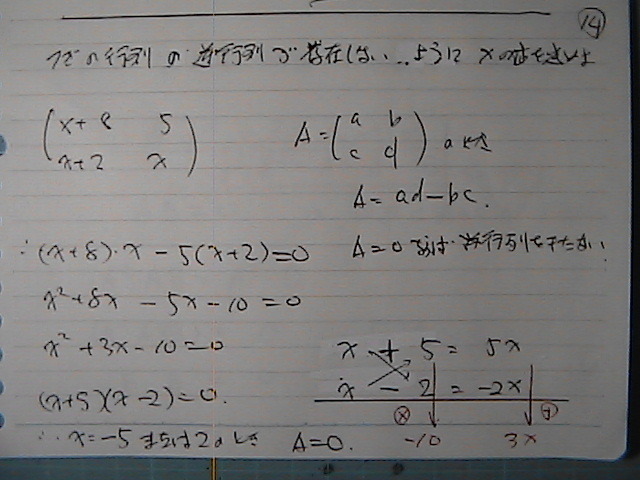 ⑭
つぎの行列の逆行列が存在しない..ように xの値を定めよ
(x+8 5
x+2 x)
A=(a b
c d) のとき
A=ad-bc.
∴(x+8)·x-5(x+2)=0
A=0 ならば 逆行列をもたない
x²+8x-5x-10=0
x²+3x-10=0
(x+5)(x-2)=0.
∴x=-5 または 2のとき A=0.
x + 5 = 5x
x - 2 = -2x
⊗ -10 ⊕ 3x